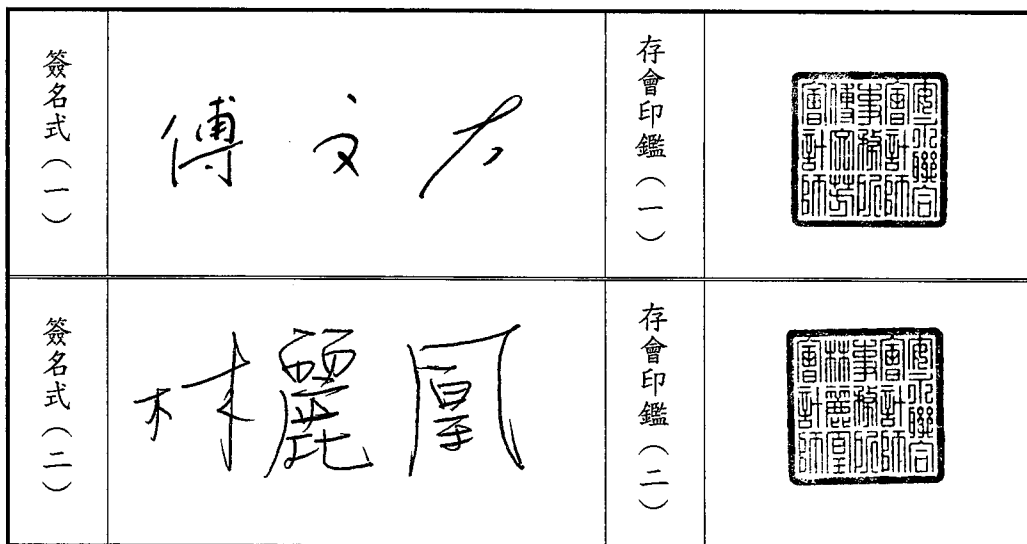 簽名式（一）
傅文芳
存會印鑑（一）
安永聯合
會計師
事務所
傅文芳
會計師
簽名式（二）
林麗凰
存會印鑑（二）
安永聯合
會計師
事務所
林麗凰
會計師